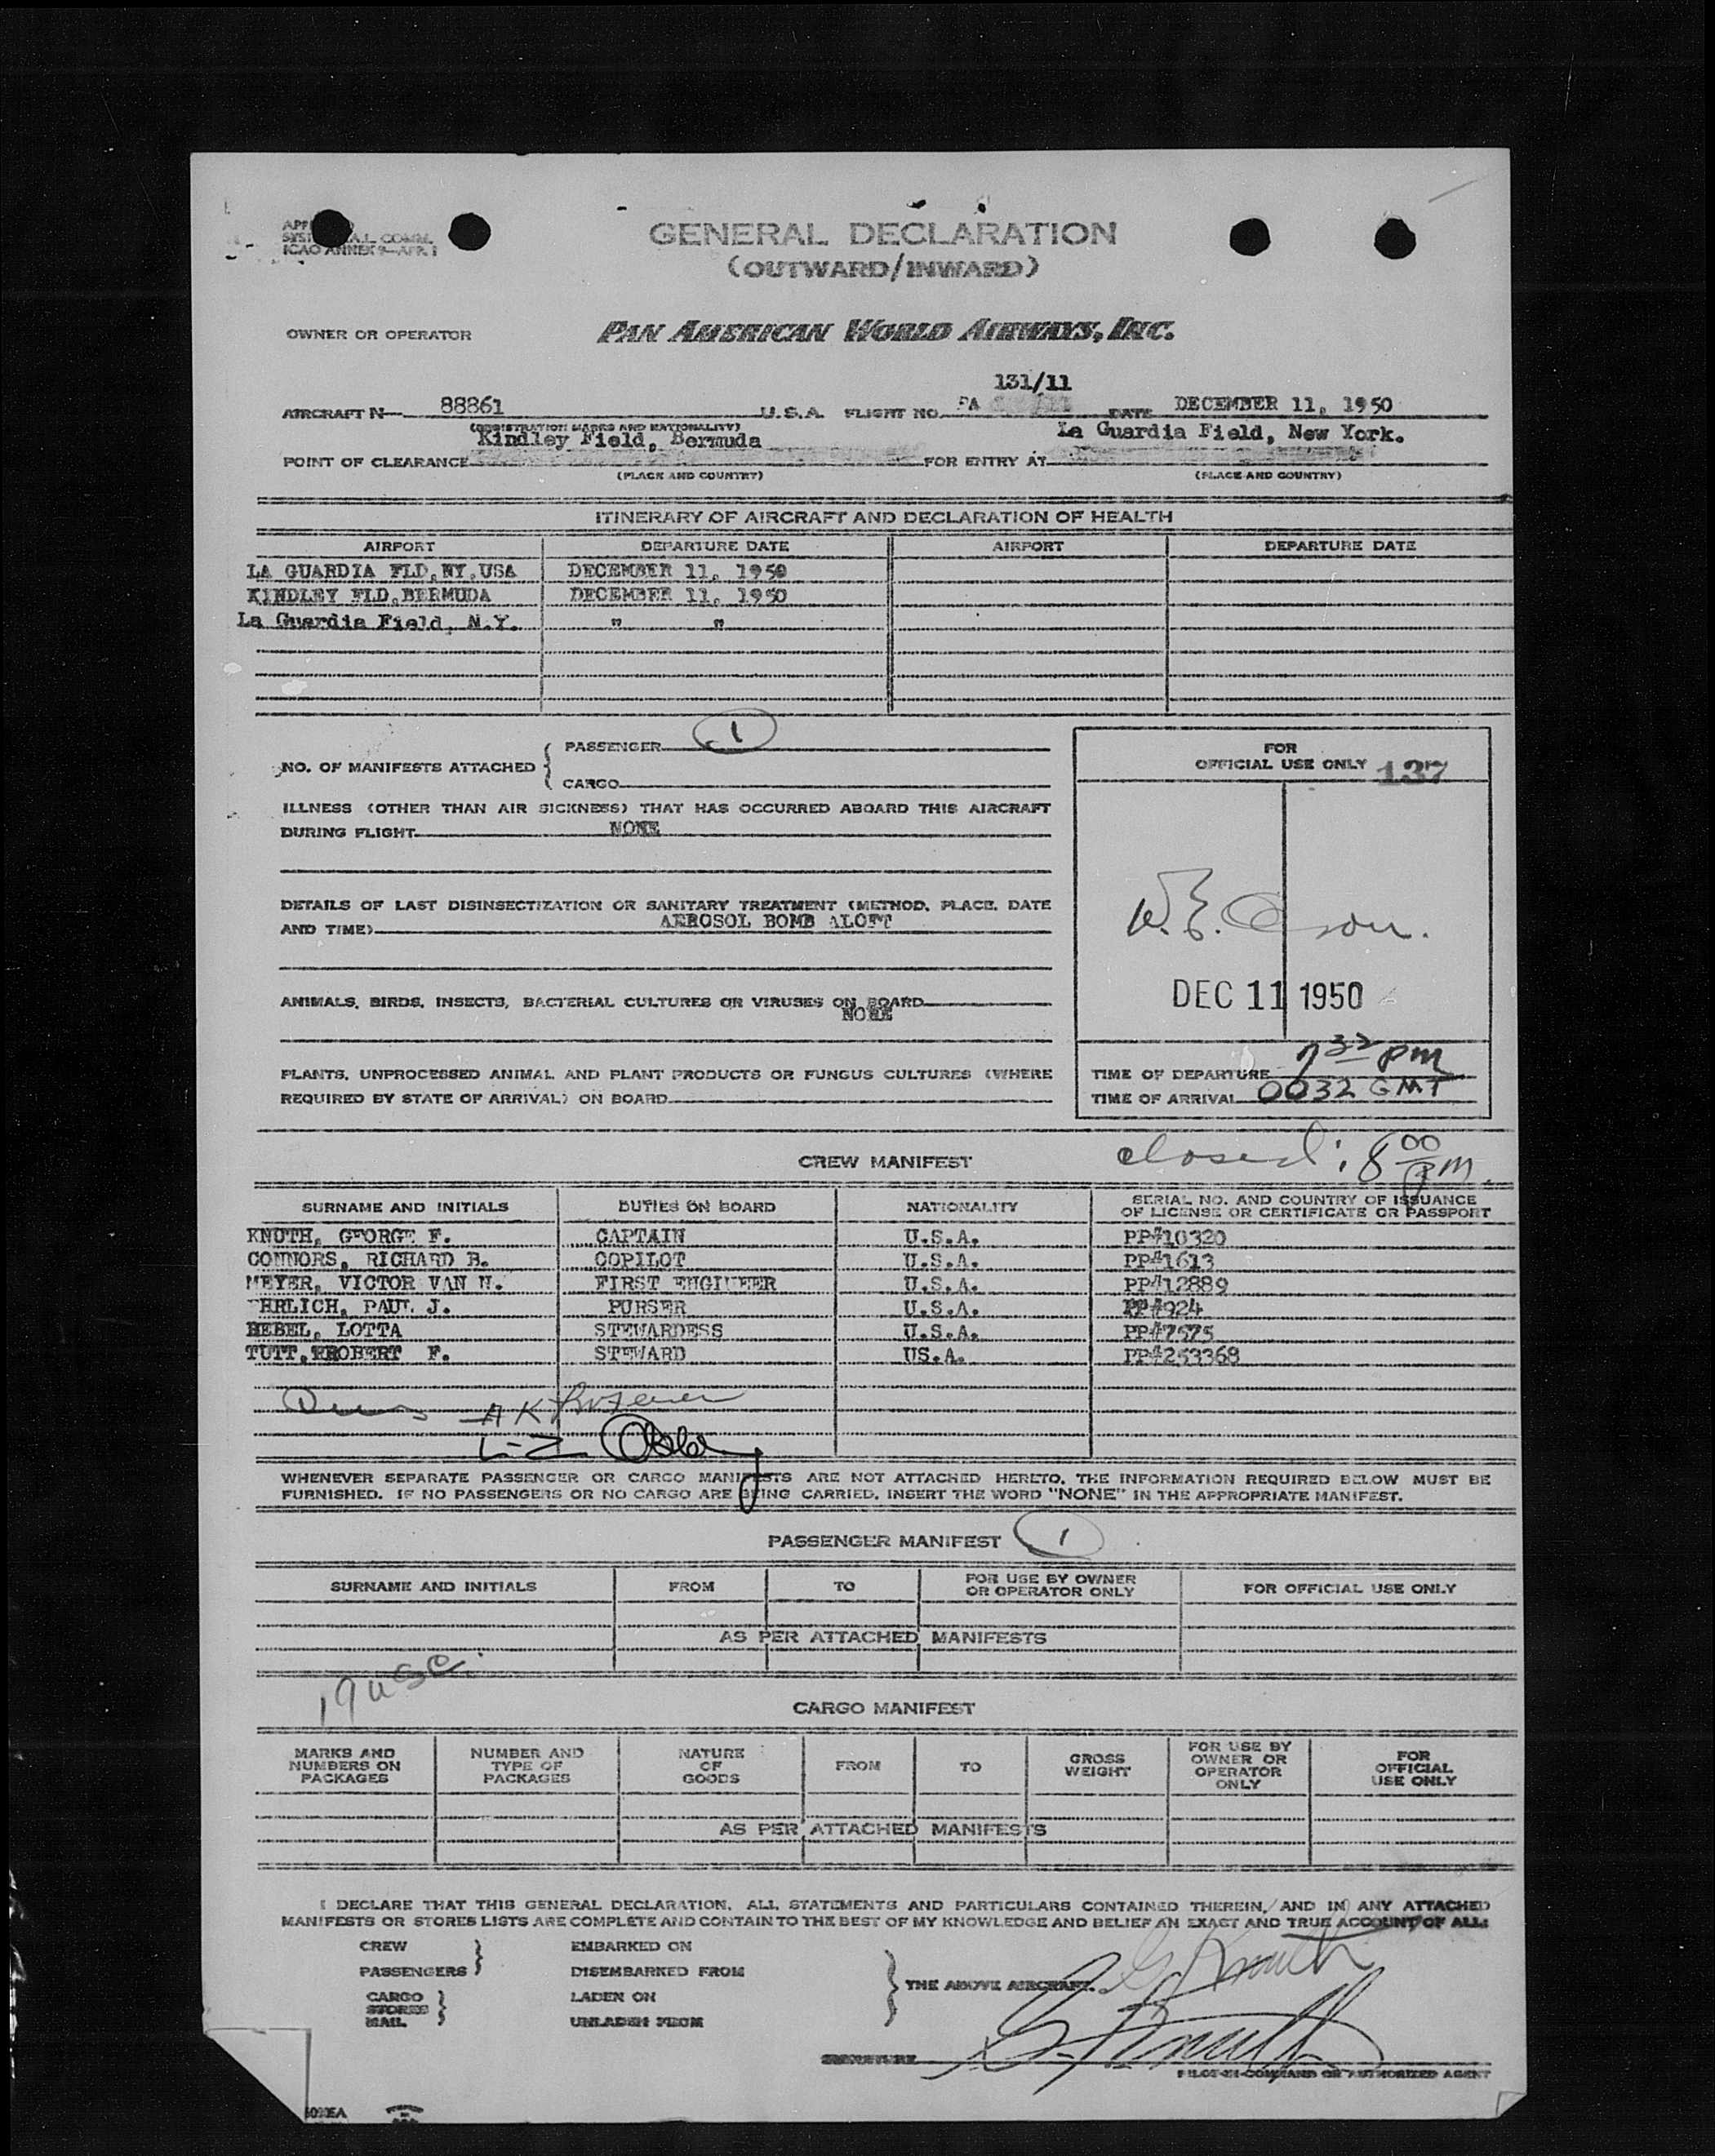 GENERAL DECLARATION
(OUTWARD/INWARD)
ICAO ANNEX 9—APR. 1
OWNER OR OPERATOR PAN AMERICAN WORLD AIRWAYS, INC.
131/11
AIRCRAFT N 88861 U.S.A. FLIGHT NO. PA DATE DECEMBER 11, 1950
(REGISTRATION MARKS AND NATIONALITY)
Kindley Field, Bermuda La Guardia Field, New York.
POINT OF CLEARANCE FOR ENTRY AT
(PLACE AND COUNTRY) (PLACE AND COUNTRY)
ITINERARY OF AIRCRAFT AND DECLARATION OF HEALTH
AIRPORT DEPARTURE DATE AIRPORT DEPARTURE DATE
LA GUARDIA FLD.NY.USA DECEMBER 11, 1950
KINDLEY FLD.BERMUDA DECEMBER 11, 1950
La Guardia Field, N.Y. " "
NO. OF MANIFESTS ATTACHED { PASSENGER 1
CARGO
ILLNESS (OTHER THAN AIR SICKNESS) THAT HAS OCCURRED ABOARD THIS AIRCRAFT
DURING FLIGHT NONE
DETAILS OF LAST DISINSECTIZATION OR SANITARY TREATMENT (METHOD, PLACE, DATE
AND TIME) AEROSOL BOMB ALOFT
ANIMALS, BIRDS, INSECTS, BACTERIAL CULTURES OR VIRUSES ON BOARD
NONE
PLANTS, UNPROCESSED ANIMAL AND PLANT PRODUCTS OR FUNGUS CULTURES (WHERE
REQUIRED BY STATE OF ARRIVAL) ON BOARD
FOR
OFFICIAL USE ONLY 137
DEC 11 1950
TIME OF DEPARTURE 7 32 pm
TIME OF ARRIVAL 0032 GMT
closed: 8 00 pm.
CREW MANIFEST
SURNAME AND INITIALS DUTIES ON BOARD NATIONALITY SERIAL NO. AND COUNTRY OF ISSUANCE
OF LICENSE OR CERTIFICATE OR PASSPORT
KNUTH, GEORGE F. CAPTAIN U.S.A. PP#10320
CONNORS, RICHARD B. COPILOT U.S.A. PP#1613
MEYER, VICTOR VAN N. FIRST ENGINEER U.S.A. PP#12889
EHRLICH, PAUL J. PURSER U.S.A. PP#924
HEBEL, LOTTA STEWARDESS U.S.A. PP#7575
TUTT,RROBERT F. STEWARD US.A. PP#253368
WHENEVER SEPARATE PASSENGER OR CARGO MANIFESTS ARE NOT ATTACHED HERETO, THE INFORMATION REQUIRED BELOW MUST BE
FURNISHED. IF NO PASSENGERS OR NO CARGO ARE BEING CARRIED, INSERT THE WORD "NONE" IN THE APPROPRIATE MANIFEST.
PASSENGER MANIFEST 1
SURNAME AND INITIALS FROM TO FOR USE BY OWNER
OR OPERATOR ONLY FOR OFFICIAL USE ONLY
AS PER ATTACHED MANIFESTS
19 USC.
CARGO MANIFEST
MARKS AND
NUMBERS ON
PACKAGES
NUMBER AND
TYPE OF
PACKAGES
NATURE
OF
GOODS
FROM
TO
GROSS
WEIGHT
FOR USE BY
OWNER OR
OPERATOR
ONLY
FOR
OFFICIAL
USE ONLY
AS PER ATTACHED MANIFESTS
I DECLARE THAT THIS GENERAL DECLARATION, ALL STATEMENTS AND PARTICULARS CONTAINED THEREIN, AND IN ANY ATTACHED
MANIFESTS OR STORES LISTS ARE COMPLETE AND CONTAIN TO THE BEST OF MY KNOWLEDGE AND BELIEF AN EXACT AND TRUE ACCOUNT OF ALL:
CREW EMBARKED ON
PASSENGERS DISEMBARKED FROM
THE ABOVE AIRCRAFT. G Knuth
CARGO LADEN ON
STORES
MAIL UNLADEN FROM
SIGNATURE G. Knuth
PILOT-IN-COMMAND OR AUTHORIZED AGENT